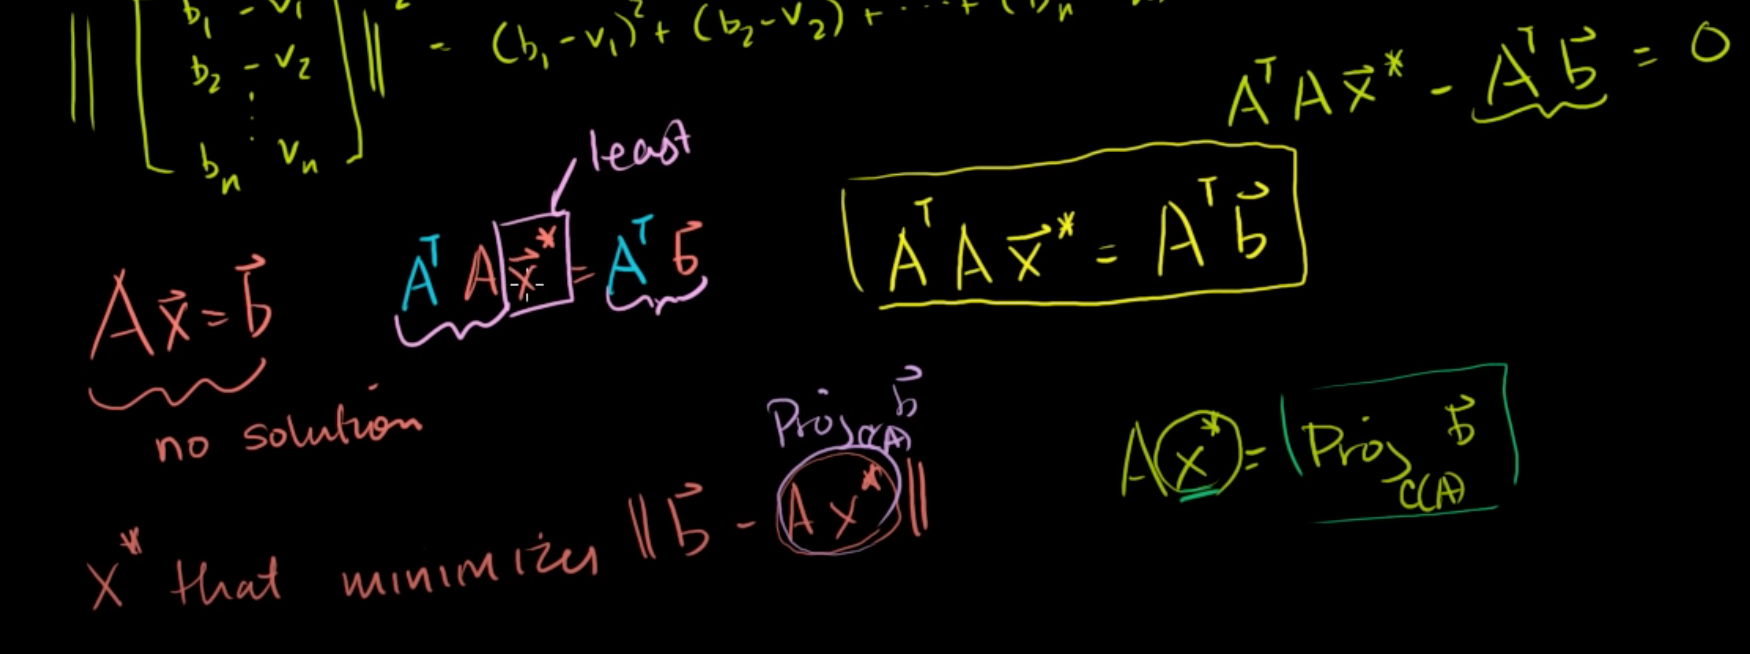 ‖ [ b₁ - v₁ ; b₂ - v₂ ; ⋮ ; bₙ vₙ ] ‖² = (b₁ - v₁)² + (b₂ - v₂) + ··· + (bₙ
AᵀA x⃗* - Aᵀb⃗ = 0
least
AᵀA x⃗* = Aᵀb⃗
AᵀA x⃗* = Aᵀb⃗
Ax⃗ = b⃗
no solution
Proj_C(A) b⃗
Ax* = Proj_C(A) b⃗
x* that minimizes ‖b⃗ - Ax*‖